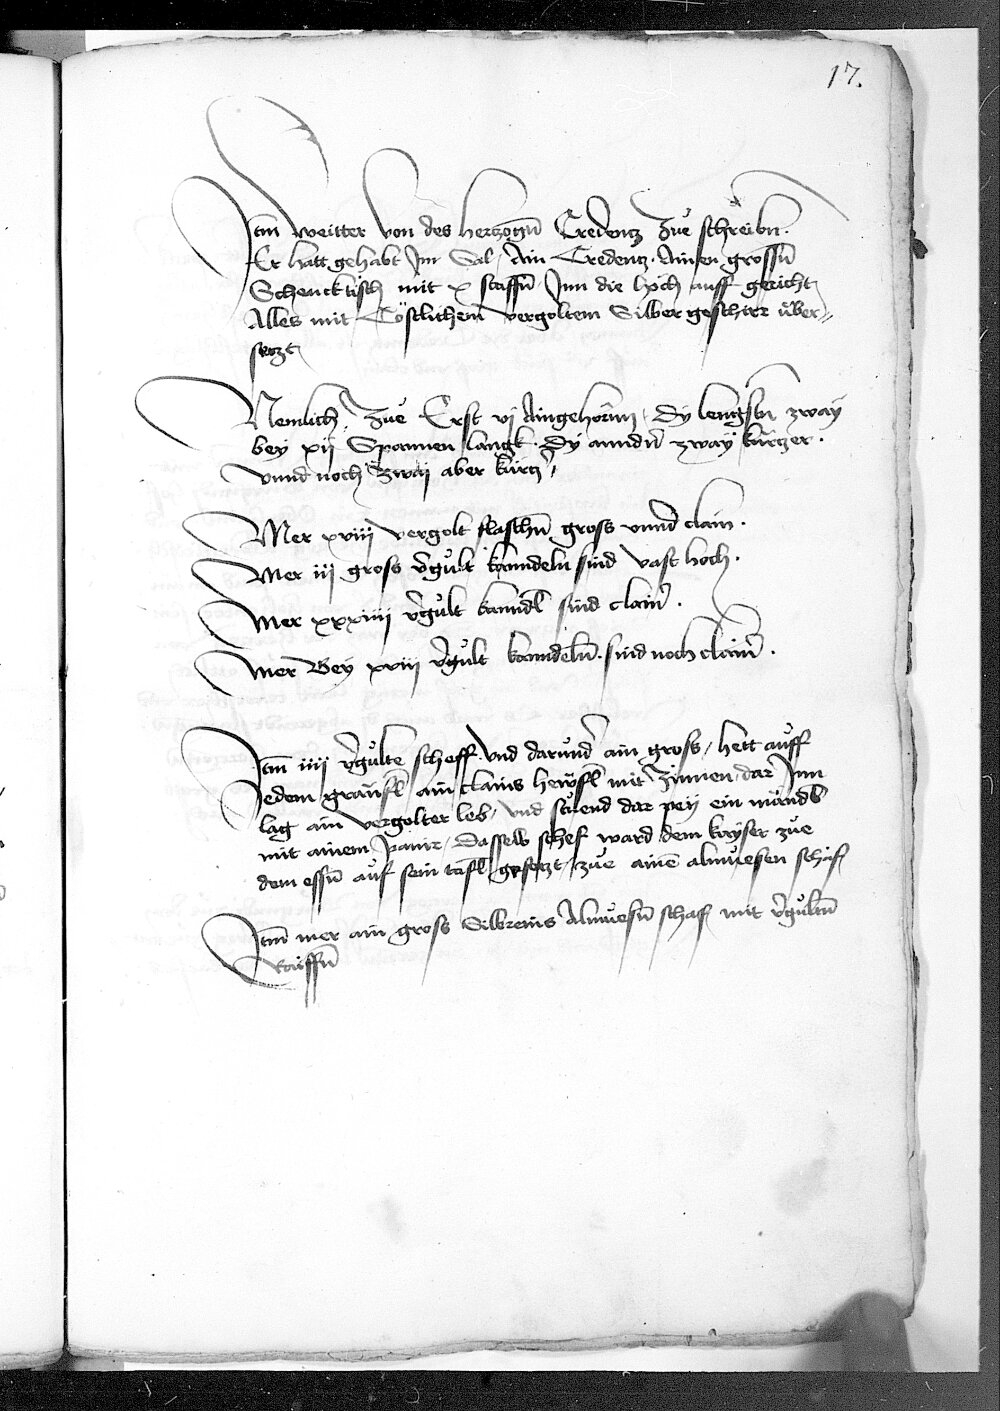 17.
Itm weitter von des hertzogn̄ Credentz Zuͤe schreibn̄.
Er hatt gehabt Im Sal / Ain Credentz. Ainen grossn̄
Schencktisch mit x staffln̄ Inn die höch auff gericht
Alles mit Cöstlichem̄ vergoltem Silber geschirr vber=
setzt
Nemlich Zuͤe Erst vj Aingehörnn / Dy lengstn̄ zway
bey xij Spannen langk. Dy anndn̄ zway kürtzer.
vnnd noch Zwaij aber kürtz̄
Mer xviij vergolt flaschn̄ gross vnnd clain.
Mer iij gross v̄gult kanndeln sind vast hoch.
Mer xxxiiij v̄gult kanndl sind clain̄.
Mer Bey xviij v̄gult kanndeln̄. sind noch clain̄.
Itm iiij v̄gulte scheff. vnd darund̄ ain gross / hett auff
Jedem gransl ain clains hewsl mit Zinnen / dar Inn
lag ain vergolter leb / vnd stuend dar peij ein mändl
mit ainem panir / Dasselb schef ward dem kayser zue
dem essn̄ auf sein tafl gesetzt / zue ainē almuesen schaf
Itm mer ain gross Silbreins Almuesn̄ schaf mit v̄gultn̄
Raiffn̄